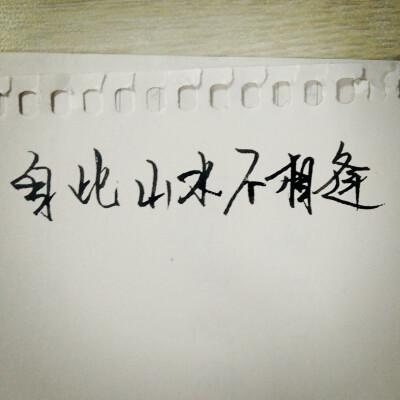 自此山水不相逢